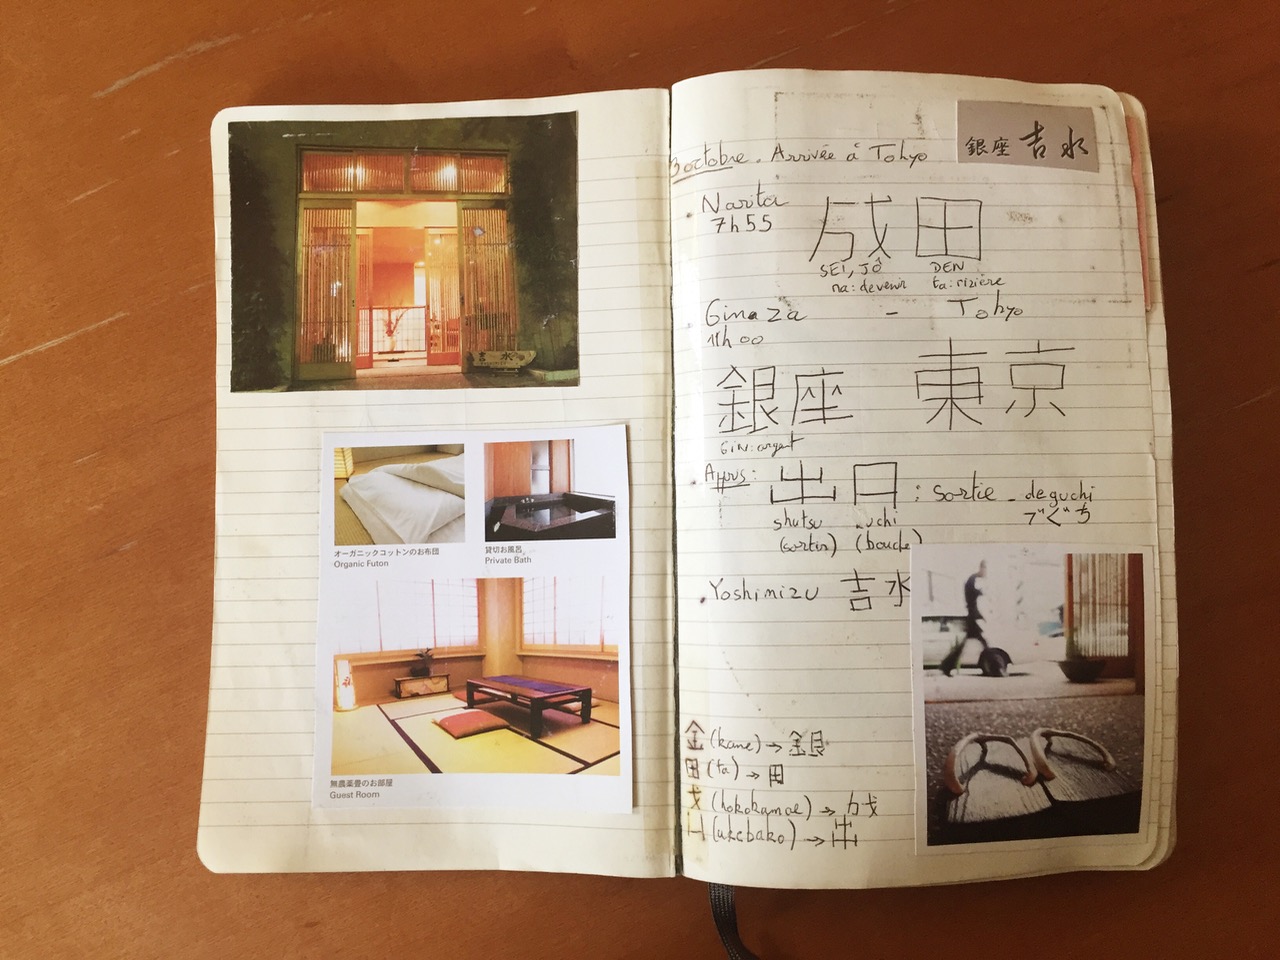 吉水
オーガニックコットンのお布団
Organic Futon
貸切お風呂
Private Bath
無農薬畳のお部屋
Guest Room
銀座 吉水
3 octobre. Arrivée à Tokyo
Narita 成田
7h55
SEI, JÔ DEN
na: devenir ta: rizière
Ginaza - Tokyo
11h00
銀座 東京
GIN: argent
Appris: 出口: sortie - deguchi
でぐち
shutsu uchi
(sortir) (bouche)
Yoshimizu 吉水
金 (kane) → 銀
田 (ta) → 田
戈 (hokokamae) → 成
凵 (ukebako) → 出